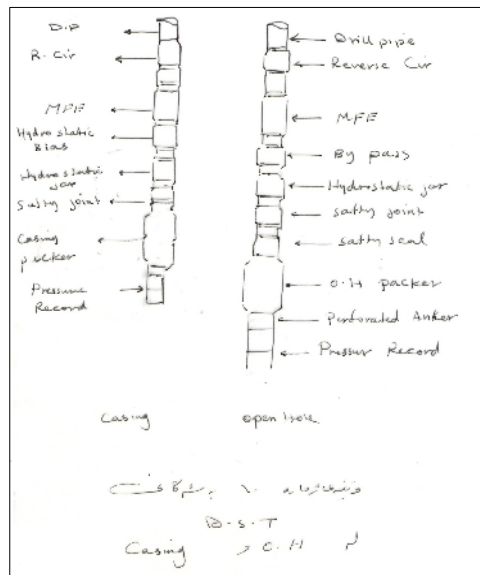 D.P
R. Cir
MFE
Hydrostatic
Bias
Hydrostatic
jar
Safty joint
Casing
packer
Pressure
Record
Drill pipe
Reverse Cir
MFE
By pass
Hydrostatic jar
safty joint
safty seal
O.H packer
Perforated Anker
Pressur Record
Casing
open Hole
D.S.T
Casing و O.H